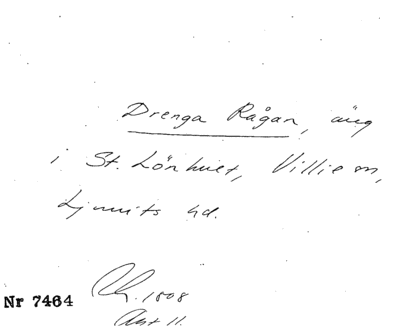 Drenga Rågan, äng
i St. Lönhult, Villie sn,
Ljunits hd.
Nr 7464
Ch. 1808
Akt 11.